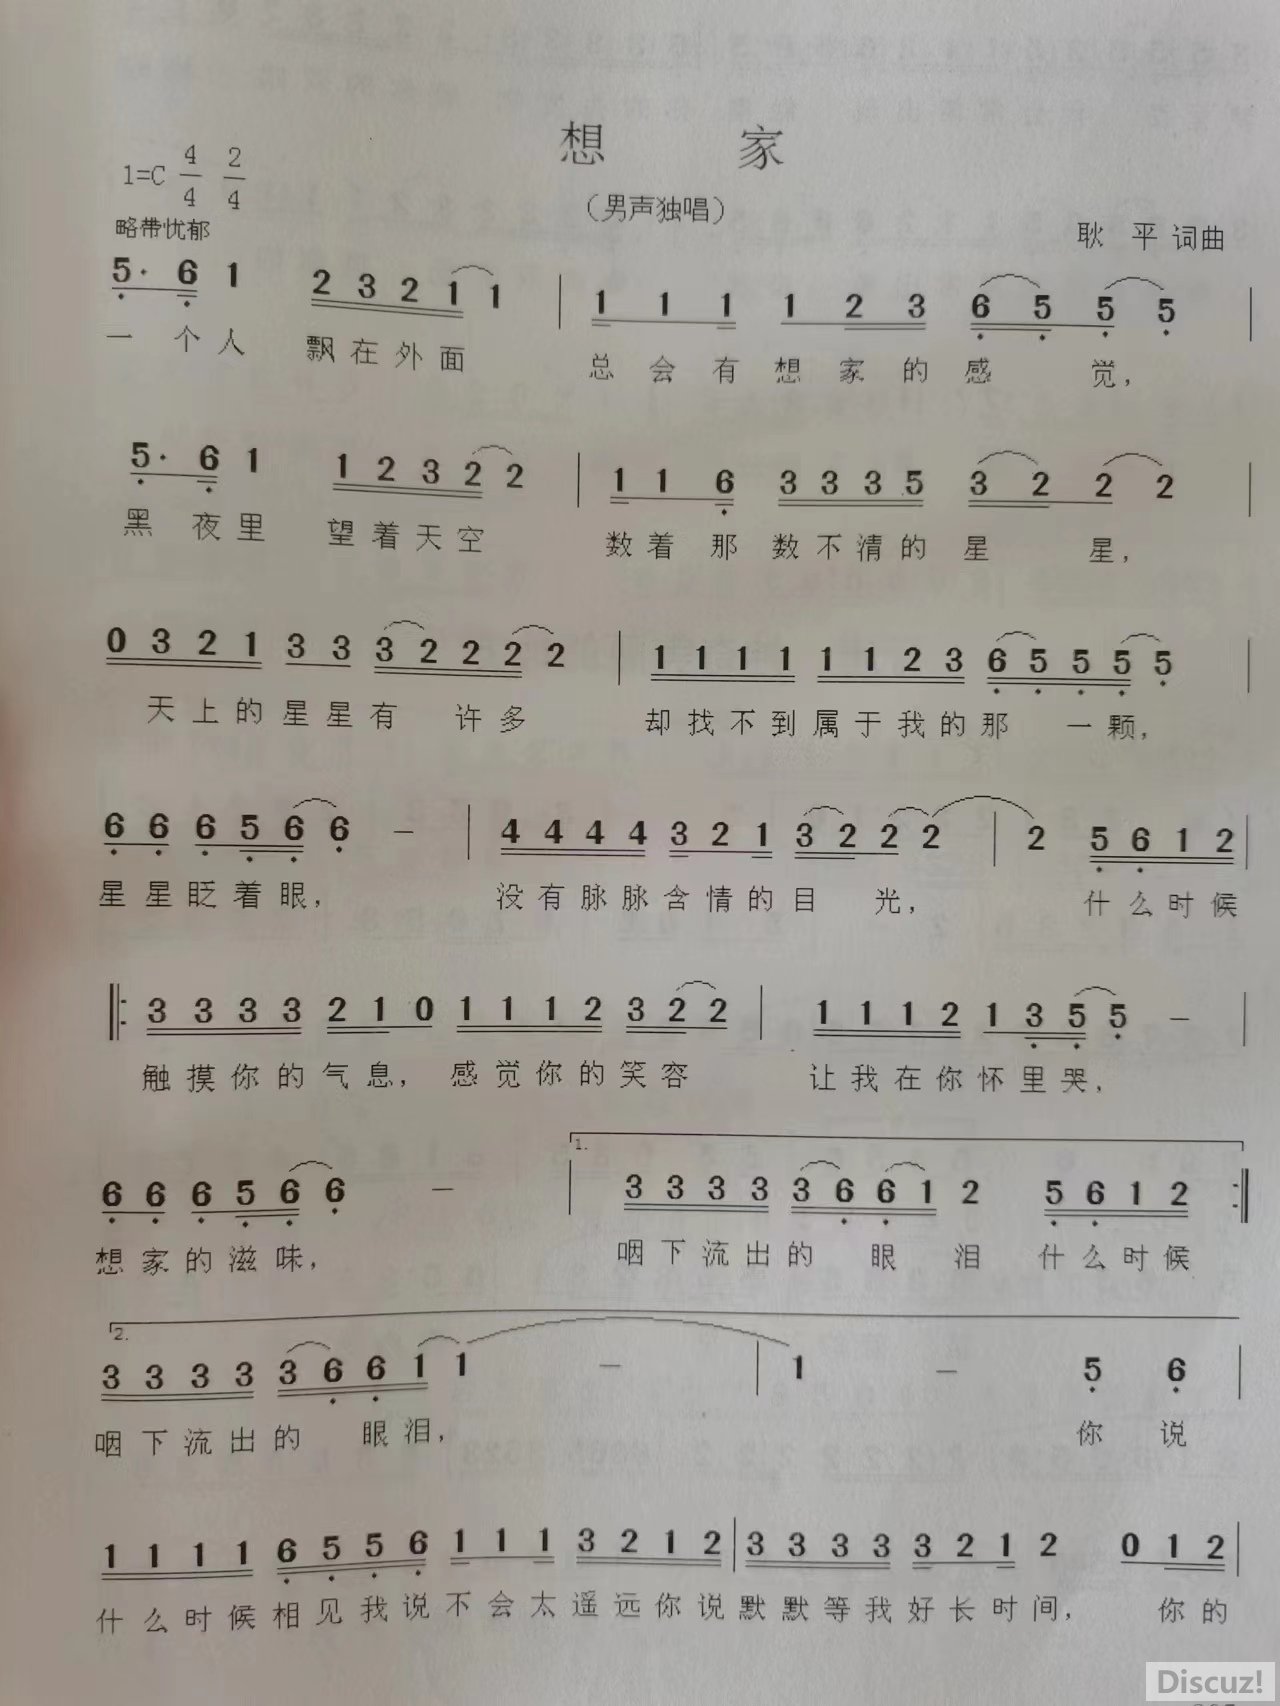 想 家
1=C 4/4 2/4
（男声独唱）
略带忧郁
耿 平 词曲
5· 6 1 2 3 2 1 1 | 1 1 1 1 2 3 6 5 5 5 |
一 个 人 飘 在 外 面 总 会 有 想 家 的 感 觉，
5· 6 1 1 2 3 2 2 | 1 1 6 3 3 3 5 3 2 2 2 |
黑 夜 里 望 着 天 空 数 着 那 数 不 清 的 星 星，
0 3 2 1 3 3 3 2 2 2 2 | 1 1 1 1 1 1 2 3 6 5 5 5 5 |
天 上 的 星 星 有 许 多 却 找 不 到 属 于 我 的 那 一 颗，
6 6 6 5 6 6 － | 4 4 4 4 3 2 1 3 2 2 2 | 2 5 6 1 2 |
星 星 眨 着 眼， 没 有 脉 脉 含 情 的 目 光， 什 么 时 候
‖: 3 3 3 3 2 1 0 1 1 1 2 3 2 2 | 1 1 1 2 1 3 5 5 － |
触 摸 你 的 气 息， 感 觉 你 的 笑 容 让 我 在 你 怀 里 哭，
1.
6 6 6 5 6 6 － | 3 3 3 3 3 6 6 1 2 5 6 1 2 :‖
想 家 的 滋 味， 咽 下 流 出 的 眼 泪 什 么 时 候
2.
3 3 3 3 3 6 6 1 1 － | 1 － 5 6 |
咽 下 流 出 的 眼 泪， 你 说
1 1 1 1 6 5 5 6 1 1 1 3 2 1 2 | 3 3 3 3 3 2 1 2 0 1 2 |
什 么 时 候 相 见 我 说 不 会 太 遥 远 你 说 默 默 等 我 好 长 时 间， 你 的
Discuz!